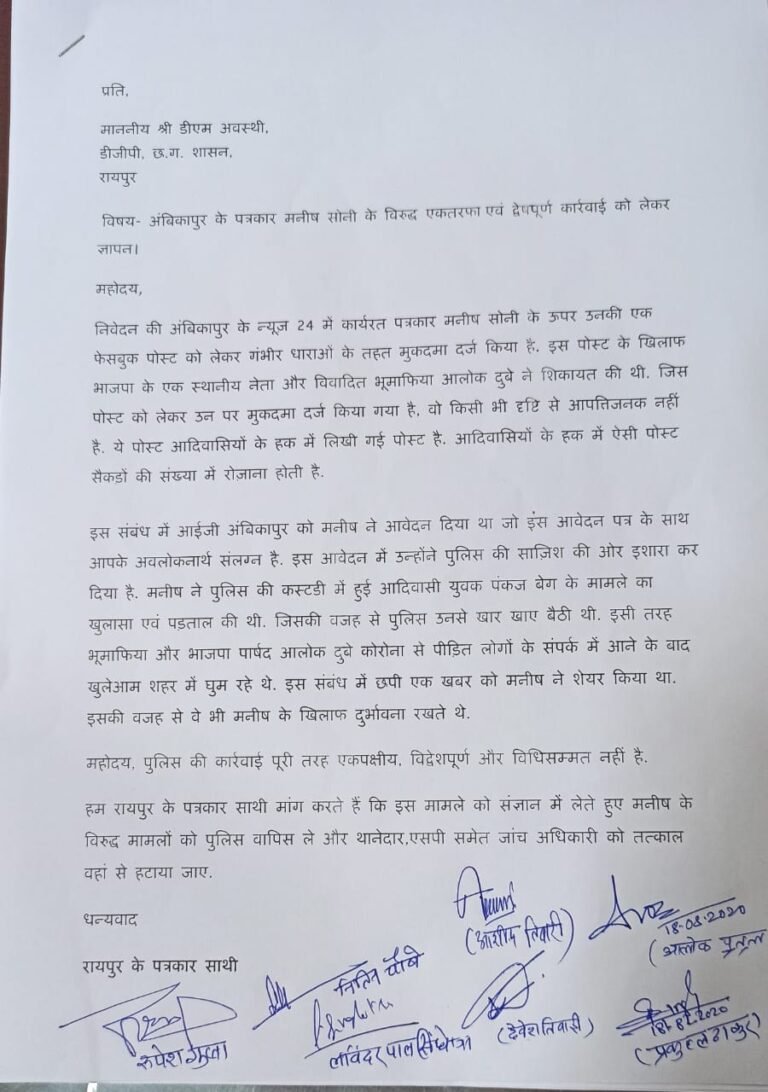 प्रति,
माननीय श्री डीएम अवस्थी,
डीजीपी, छ.ग. शासन,
रायपुर
विषय- अंबिकापुर के पत्रकार मनीष सोनी के विरुद्ध एकतरफा एवं द्वेषपूर्ण कार्रवाई को लेकर
ज्ञापन।
महोदय,
निवेदन की अंबिकापुर के न्यूज 24 में कार्यरत पत्रकार मनीष सोनी के ऊपर उनकी एक
फेसबुक पोस्ट को लेकर गंभीर धाराओं के तहत मुकदमा दर्ज किया है. इस पोस्ट के खिलाफ
भाजपा के एक स्थानीय नेता और विवादित भूमाफिया आलोक दुबे ने शिकायत की थी. जिस
पोस्ट को लेकर उन पर मुकदमा दर्ज किया गया है, वो किसी भी दृष्टि से आपत्तिजनक नहीं
है. ये पोस्ट आदिवासियों के हक में लिखी गई पोस्ट है. आदिवासियों के हक में ऐसी पोस्ट
सैकडों की संख्या में रोज़ाना होती है.
इस संबंध में आईजी अंबिकापुर को मनीष ने आवेदन दिया था जो इस आवेदन पत्र के साथ
आपके अवलोकनार्थ संलग्न है. इस आवेदन में उन्होंने पुलिस की साज़िश की ओर इशारा कर
दिया है. मनीष ने पुलिस की कस्टडी में हुई आदिवासी युवक पंकज बेग के मामले का
खुलासा एवं पडताल की थी. जिसकी वजह से पुलिस उनसे खार खाए बैठी थी. इसी तरह
भूमाफिया और भाजपा पार्षद आलोक दुबे कोरोना से पीड़ित लोगों के संपर्क में आने के बाद
खुलेआम शहर में घुम रहे थे. इस संबंध में छपी एक खबर को मनीष ने शेयर किया था.
इसकी वजह से वे भी मनीष के खिलाफ दुर्भावना रखते थे.
महोदय, पुलिस की कार्रवाई पूरी तरह एकपक्षीय, विद्वेशपूर्ण और विधिसम्मत नहीं है.
हम रायपुर के पत्रकार साथी मांग करते हैं कि इस मामले को संज्ञान में लेते हुए मनीष के
विरुद्ध मामलों को पुलिस वापिस ले और थानेदार,एसपी समेत जांच अधिकारी को तत्काल
वहां से हटाया जाए.
धन्यवाद
रायपुर के पत्रकार साथी
(आशीष तिवारी)
18-08-2020
(आलोक
नितिन चौबे
रुपेश गुप्ता
लविंदर पाल
(देवेश तिवारी)
(प्रफुल्ल ठाकुर)